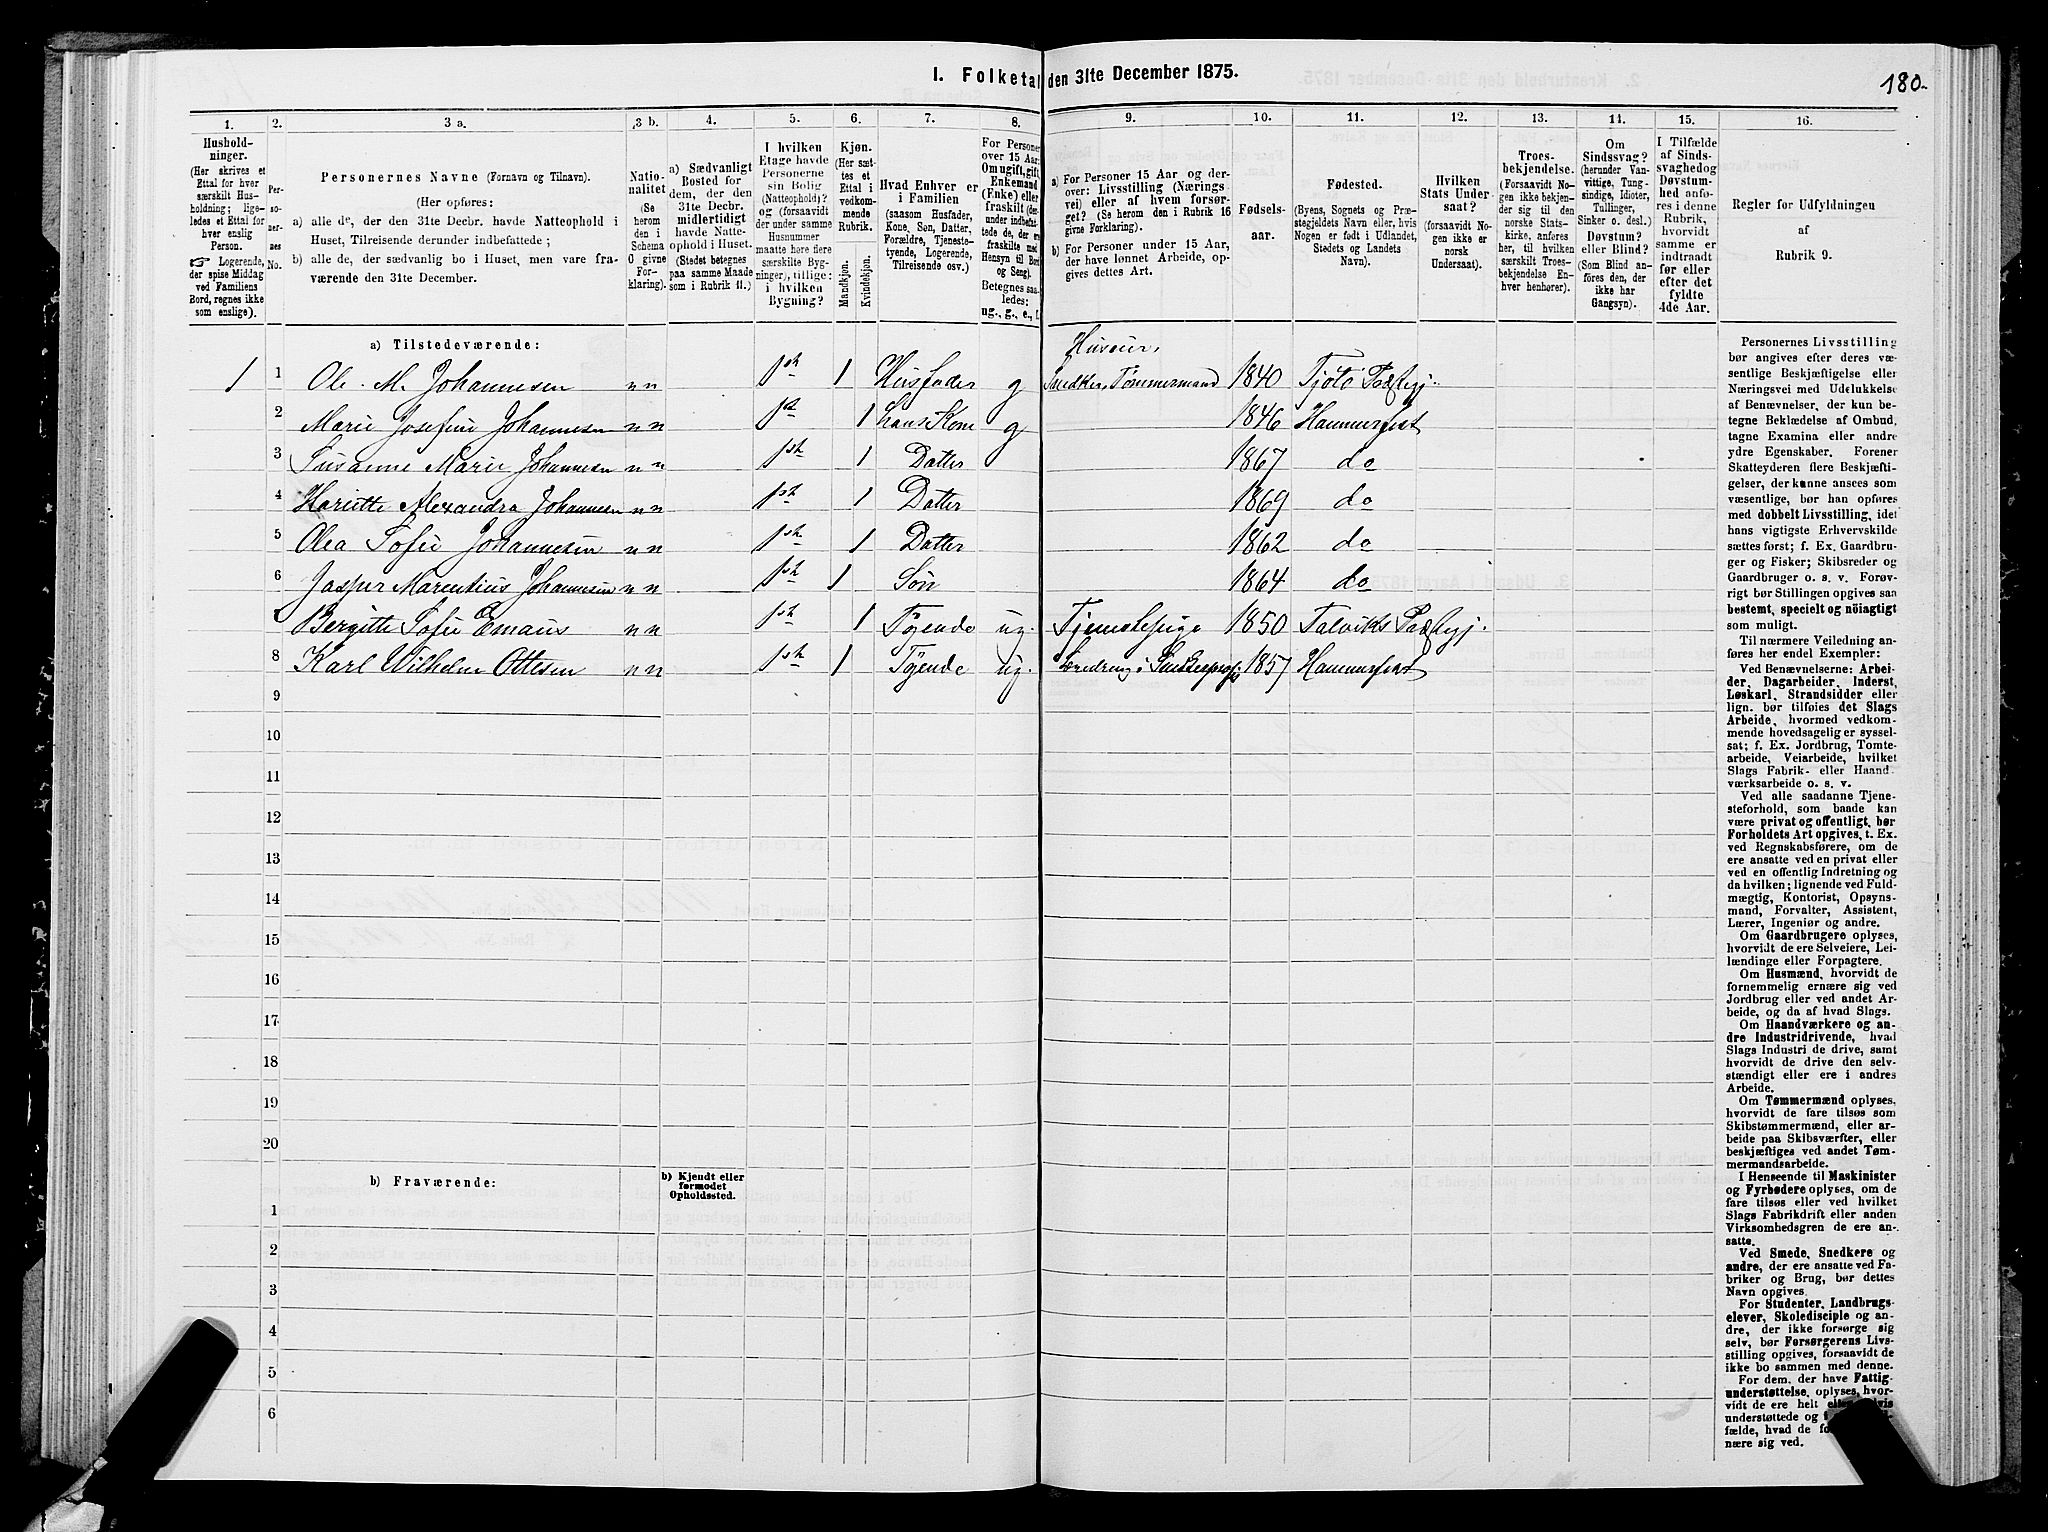 I. Folketal den 31te December 1875.
180.
1. 2. 3 a. 3 b. 4. 5. 6. 7. 8. 9. 10. 11. 12. 13. 14. 15. 16.
Husholdninger. (Her skrives et Ettal for hver særskilt Husholdning; ligeledes et Ettal for hver enslig Person. ☞ Logerende, der spise Middag ved Familiens Bord, regnes ikke som enslige).
Personernes No.
Personernes Navne (Fornavn og Tilnavn).
(Her opføres:
a) alle de, der den 31te Decbr. havde Natteophold i Huset, Tilreisende derunder indbefattede;
b) alle de, der sædvanlig bo i Huset, men vare fraværende den 31te December.
Nationalitet (Se herom den i Schema O givne Forklaring).
a) Sædvanligt Bosted for dem, der den 31te Decbr. midlertidigt havde Natteophold i Huset. (Stedet betegnes paa samme Maade som i Rubrik 11.)
I hvilken Etage havde Personerne sin Bolig (Natteophold)? og (forsaavidt der under samme Husnummer maatte høre flere særskilte Bygninger), tillige: i hvilken Bygning?
Kjøn. (Her sættes et Ettal i vedkommende Rubrik. Mandkjøn. Kvindekjøn.
Hvad Enhver er i Familien (saasom Husfader, Kone, Søn, Datter, Forældre, Tjenestetyende, Logerende, Tilreisende osv.)
For Personer over 15 Aar: Om ugift, gift, Enkemand (Enke) eller fraskilt
Betegnes saaledes: ug., g., e., f.
a) For Personer 15 Aar og derover: Livsstilling (Næringsvei) eller af hvem forsørget? (Se herom den i Rubrik 16 givne Førklaring).
b) For Personer under 15 Aar, der have lønnet Arbeide, opgives dettes Art.
Fødselsaar.
Fødested. (Byens, Sognets og Præstegjeldets Navn eller, hvis Nogen er født i Udlandet, Stedets og Landets Navn).
Hvilken Stats Undersaat? (forsaavidt Nogen ikke er norsk Undersaat).
Troesbekjendelse. (Forsaavidt Nogen ikke bekjender sig til den norske Statskirke, anføres her, til hvilken særskilt Troesbekjendelse Enhver henhører).
Om Sindssvag? (herunder Vanvittige, Tungsindige, Idioter, Tullinger, Sinker o. desl.) Døvstum? eller Blind? (Som Blind anføres den, der ikke har Gangsyn).
I Tilfælde af Sindssvaghed og Døvstumhed anføres i denne Rubrik, hvorvidt samme er indtraadt før eller efter det fyldte 4de Aar.
Regler for Udfyldningen af Rubrik 9.
a) Tilstedeværende:
Huseier,
1 1 Ole M. Johannesen n n 1st 1 Husfader g Snedker, Tømmermand 1840 Tjötö Præstegj.
2 Marie Josefine Johannesen n n 1st 1 hans Kone g 1846 Hammerfest
3 Susanne Marie Johannesen n n 1st 1 Datter 1867 do
4 Hariette Alexandra Johannesen n n 1st 1 Datter 1869 do
5 Olea Sofie Johannesen n n 1st 1 Datter 1862 do
6 Jasper Marentius Johannesen n n 1st 1 Søn 1864 do
Bergitte Sofie Emaus n n 1st 1 Tyende ug. Tjenestepige 1850 Talviks Præstegj.
8 Karl Wilhelm Ottesen n n 1st 1 Tyende ug. 1857 Hammerfest
9
10
11
12
13
14
15
16
17
18
19
20
b) Fraværende:
b) Kjendt eller formodet Opholdssted.
1
2
3
4
5
6
Personernes Livsstilling
bør angives efter deres væsentlige
Beskjæftigelse eller
Næringsvei med Udelukkelse
af Benævnelser, der kun betegne
Beklædelse af Ombud,
tagne Examina eller andre
ydre Egenskaber. Forener
Skatteyderen flere Beskjæftigelser,
der kunne ansees som
væsentlige, bør han opføres
med dobbelt Livsstilling, idet
hans vigtigste Erhvervskilde
sættes først; f. Ex. Gaardbruger
og Fisker; Skibsreder og
Gaardbruger o. s. v. Forøvrigt
bør Stillingen opgives saa
bestemt, specielt og nöiagtigt
som muligt.
Til nærmere Veiledning anføres
her endel Exempler:
Ved Benævnelserne: Arbeider,
Dagarbeider, Inderst,
Løskarl, Strandsidder eller
lign. bør tilføies det Slags
Arbeide, hvormed vedkommende
hovedsagelig er sysselsat;
f. Ex. Jordbrug, Tomtearbeide,
Veiarbeide, hvilket
Slags Fabrik- eller Haandværksarbeide
o. s. v.
Ved alle saadanne Tjenesteforhold,
som baade kan
være privat og offentligt, bør
Forholdets Art opgives, t. Ex.
ved Regnskabsførere, om de
ere ansatte ved en privat eller
ved en offentlig Indretning og
da hvilken; lignende ved Fuldmægtig,
Kontorist, Opsynsmand,
Forvalter, Assistent,
Lærer, Ingeniør og andre.
Om Gaardbrugere oplyses,
hvorvidt de ere Selveiere, Leilændinge
eller Forpagtere.
Om Husmænd, hvorvidt de
fornemmelig ernære sig ved
Jordbrug eller ved andet Arbeide,
og da af hvad Slags.
Om Haandværkere og andre
Industridrivende, hvad
Slags Industri de drive, samt
hvorvidt de drive den selvstændigt
eller ere i andres
Arbeide.
Om Tømmermænd oplyses,
hvorvidt de fare tilsøs som
Skibstømmermænd, eller arbeide
paa Skibsværfter, eller
beskjæftiges ved andet Tømmermandsarbeide.
I Henseende til Maskinister
og Fyrbødere oplyses, om de
fare tilsøs eller ved hvilket
Slags Fabrikdrift eller anden
Virksomhedsgren de ere ansatte.
Ved Smede, Snedkere og
andre, der ere ansatte ved Fabriker
og Brug, bør dettes
Navn opgives.
For Studenter, Landbrugselever,
Skoledisciple og andre,
der ikke forsørge sig
selv, bør Forsørgerens Livsstilling
opgives, forsaavidt de
ikke bo sammen med denne.
For dem, der have Fattigunderstøttelse,
oplyses, hvorvidt
de ere helt
understøttede og
fælde, hvad de
nære sig ved.